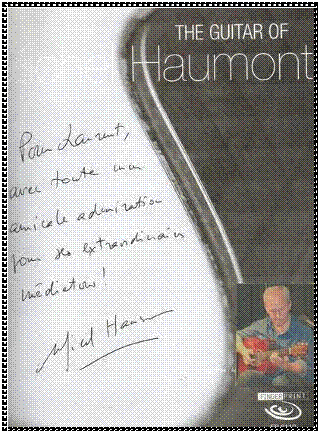 THE GUITAR OF
Haumont
Pour Laurent,
avec toute mon
amicale admiration
pour ses extraordinaires
médiators!
Michel Haumont
FINGERPRINT